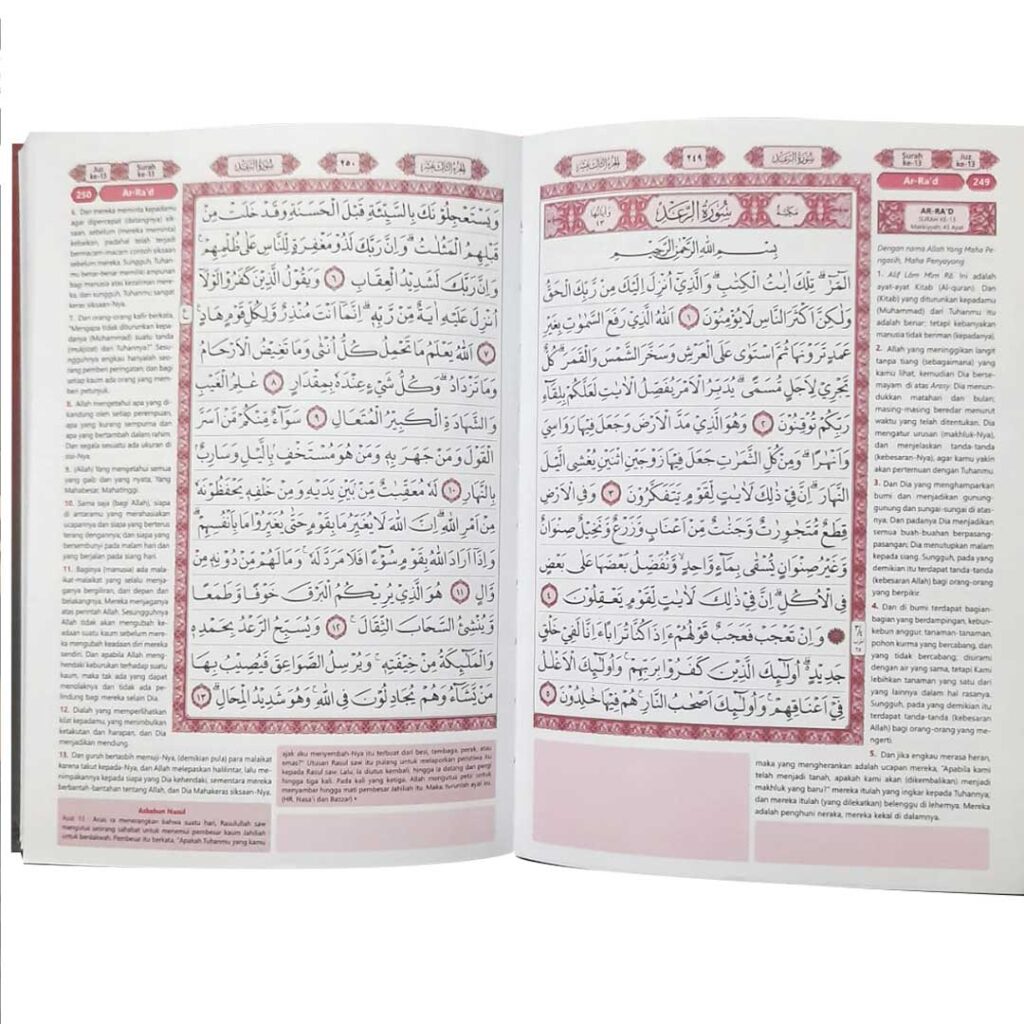 سُورَةُ الرَّعْدِ
٢٤٩
الجزء الثالث عشر
Surah ke-13
Juz ke-13
Ar-Ra'd
249
سُوْرَةُ الرَّعْدِ
مكيّة
واياتها ٤٣
بِسْمِ اللّٰهِ الرَّحْمٰنِ الرَّحِيْمِ
الۤمّۤرٰۗ تِلْكَ اٰيٰتُ الْكِتٰبِۗ وَالَّذِيْٓ اُنْزِلَ اِلَيْكَ مِنْ رَّبِّكَ الْحَقُّ
وَلٰكِنَّ اَكْثَرَ النَّاسِ لَا يُؤْمِنُوْنَ ١ اَللّٰهُ الَّذِيْ رَفَعَ السَّمٰوٰتِ بِغَيْرِ
عَمَدٍ تَرَوْنَهَا ثُمَّ اسْتَوٰى عَلَى الْعَرْشِ وَسَخَّرَ الشَّمْسَ وَالْقَمَرَۗ كُلٌّ
يَّجْرِيْ لِاَجَلٍ مُّسَمًّىۗ يُدَبِّرُ الْاَمْرَ يُفَصِّلُ الْاٰيٰتِ لَعَلَّكُمْ بِلِقَاۤءِ
رَبِّكُمْ تُوْقِنُوْنَ ٢ وَهُوَ الَّذِيْ مَدَّ الْاَرْضَ وَجَعَلَ فِيْهَا رَوَاسِيَ
وَاَنْهٰرًاۗ وَمِنْ كُلِّ الثَّمَرٰتِ جَعَلَ فِيْهَا زَوْجَيْنِ اثْنَيْنِ يُغْشِى الَّيْلَ
النَّهَارَۗ اِنَّ فِيْ ذٰلِكَ لَاٰيٰتٍ لِّقَوْمٍ يَّتَفَكَّرُوْنَ ٣ وَفِى الْاَرْضِ
قِطَعٌ مُّتَجٰوِرٰتٌ وَّجَنّٰتٌ مِّنْ اَعْنَابٍ وَّزَرْعٌ وَّنَخِيْلٌ صِنْوَانٌ
وَّغَيْرُ صِنْوَانٍ يُّسْقٰى بِمَاۤءٍ وَّاحِدٍۙ وَّنُفَضِّلُ بَعْضَهَا عَلٰى بَعْضٍ
فِى الْاُكُلِۗ اِنَّ فِيْ ذٰلِكَ لَاٰيٰتٍ لِّقَوْمٍ يَّعْقِلُوْنَ ٤
وَاِنْ تَعْجَبْ فَعَجَبٌ قَوْلُهُمْ ءَاِذَا كُنَّا تُرٰبًا ءَاِنَّا لَفِيْ خَلْقٍ
جَدِيْدٍ ۗ اُولٰۤىِٕكَ الَّذِيْنَ كَفَرُوْا بِرَبِّهِمْۚ وَاُولٰۤىِٕكَ الْاَغْلٰلُ
فِيْٓ اَعْنَاقِهِمْۚ وَاُولٰۤىِٕكَ اَصْحٰبُ النَّارِۚ هُمْ فِيْهَا خٰلِدُوْنَ ٥
AR-RA'D
SURAH KE-13
Makkiyyah: 43 Ayat
Dengan nama Allah Yang Maha Pe-
ngasih, Maha Penyayang
1. Alif Lām Mīm Rā. Ini adalah
ayat-ayat Kitab (Al-quran). Dan
(Kitab) yang diturunkan kepadamu
(Muhammad) dari Tuhanmu itu
adalah benar; tetapi kebanyakan
manusia tidak beriman (kepadanya).
2. Allah yang meninggikan langit
tanpa tiang (sebagaimana) yang
kamu lihat, kemudian Dia berse-
mayam di atas Arasy. Dia menun-
dukkan matahari dan bulan;
masing-masing beredar menurut
waktu yang telah ditentukan. Dia
mengatur urusan (makhluk-Nya),
dan menjelaskan tanda-tanda
(kebesaran-Nya), agar kamu yakin
akan pertemuan dengan Tuhanmu.
3. Dan Dia yang menghamparkan
bumi dan menjadikan gunung-
gunung dan sungai-sungai di atas-
nya. Dan padanya Dia menjadikan
semua buah-buahan berpasang-
pasangan; Dia menutupkan malam
kepada siang. Sungguh, pada yang
demikian itu terdapat tanda-tanda
(kebesaran Allah) bagi orang-orang
yang berpikir.
4. Dan di bumi terdapat bagian-
bagian yang berdampingan, kebun-
kebun anggur, tanaman-tanaman,
pohon kurma yang bercabang, dan
yang tidak bercabang; disirami
dengan air yang sama, tetapi Kami
lebihkan tanaman yang satu dari
yang lainnya dalam hal rasanya.
Sungguh, pada yang demikian itu
terdapat tanda-tanda (kebesaran
Allah) bagi orang-orang yang me-
ngerti.
5. Dan jika engkau merasa heran,
maka yang mengherankan adalah ucapan mereka, "Apabila kami
telah menjadi tanah, apakah kami akan (dikembalikan) menjadi
makhluk yang baru?" mereka itulah yang ingkar kepada Tuhannya;
dan mereka itulah (yang dilekatkan) belenggu di lehernya. Mereka
adalah penghuni neraka, mereka kekal di dalamnya.
Juz ke-13
Surah ke-13
سُورَةُ الرَّعْدِ
٢٥٠
الجزء الثالث عشر
250
Ar-Ra'd
وَيَسْتَعْجِلُوْنَكَ بِالسَّيِّئَةِ قَبْلَ الْحَسَنَةِ وَقَدْ خَلَتْ مِنْ
قَبْلِهِمُ الْمَثُلٰتُۗ وَاِنَّ رَبَّكَ لَذُوْ مَغْفِرَةٍ لِّلنَّاسِ عَلٰى ظُلْمِهِمْۚ
وَاِنَّ رَبَّكَ لَشَدِيْدُ الْعِقَابِ ٦ وَيَقُوْلُ الَّذِيْنَ كَفَرُوْا لَوْلَآ
اُنْزِلَ عَلَيْهِ اٰيَةٌ مِّنْ رَّبِّهٖۗ اِنَّمَآ اَنْتَ مُنْذِرٌ وَّلِكُلِّ قَوْمٍ هَادٍ
٧ اَللّٰهُ يَعْلَمُ مَا تَحْمِلُ كُلُّ اُنْثٰى وَمَا تَغِيْضُ الْاَرْحَامُ
وَمَا تَزْدَادُ ۗ وَكُلُّ شَيْءٍ عِنْدَهٗ بِمِقْدَارٍ ٨ عٰلِمُ الْغَيْبِ
وَالشَّهَادَةِ الْكَبِيْرُ الْمُتَعَالِ ٩ سَوَاۤءٌ مِّنْكُمْ مَّنْ اَسَرَّ
الْقَوْلَ وَمَنْ جَهَرَ بِهٖ وَمَنْ هُوَ مُسْتَخْفٍۢ بِالَّيْلِ وَسَارِبٌۢ
بِالنَّهَارِ ١٠ لَهٗ مُعَقِّبٰتٌ مِّنْۢ بَيْنِ يَدَيْهِ وَمِنْ خَلْفِهٖ يَحْفَظُوْنَهٗ
مِنْ اَمْرِ اللّٰهِ ۗاِنَّ اللّٰهَ لَا يُغَيِّرُ مَا بِقَوْمٍ حَتّٰى يُغَيِّرُوْا مَا بِاَنْفُسِهِمْۗ
وَاِذَآ اَرَادَ اللّٰهُ بِقَوْمٍ سُوْۤءًا فَلَا مَرَدَّ لَهٗۚ وَمَا لَهُمْ مِّنْ دُوْنِهٖ مِنْ
وَّالٍ ١١ هُوَ الَّذِيْ يُرِيْكُمُ الْبَرْقَ خَوْفًا وَّطَمَعًا
وَّيُنْشِئُ السَّحَابَ الثِّقَالَۚ ١٢ وَيُسَبِّحُ الرَّعْدُ بِحَمْدِهٖ
وَالْمَلٰۤىِٕكَةُ مِنْ خِيْفَتِهٖۚ وَيُرْسِلُ الصَّوَاعِقَ فَيُصِيْبُ بِهَا
مَنْ يَّشَاۤءُ وَهُمْ يُجَادِلُوْنَ فِى اللّٰهِ ۚوَهُوَ شَدِيْدُ الْمِحَالِۗ ١٣
6. Dan mereka meminta kepadamu
agar dipercepat (datangnya) sik-
saan, sebelum (mereka meminta)
kebaikan, padahal telah terjadi
bermacam-macam contoh siksaan
sebelum mereka. Sungguh, Tuhan-
mu benar-benar memiliki ampunan
bagi manusia atas kezaliman mere-
ka, dan sungguh, Tuhanmu sangat
keras siksaan-Nya.
7. Dan orang-orang kafir berkata,
"Mengapa tidak diturunkan kepa-
danya (Muhammad) suatu tanda
(mukjizat) dari Tuhannya?" Sesu-
ngguhnya engkau hanyalah seo-
rang pemberi peringatan; dan bagi
setiap kaum ada orang yang mem-
beri petunjuk.
8. Allah mengetahui apa yang di-
kandung oleh setiap perempuan,
apa yang kurang sempurna dan
apa yang bertambah dalam rahim.
Dan segala sesuatu ada ukuran di
sisi-Nya.
9. (Allah) Yang mengetahui semua
yang gaib dan yang nyata; Yang
Mahabesar, Mahatinggi.
10. Sama saja (bagi Allah), siapa
di antaramu yang merahasiakan
ucapannya dan siapa yang berterus
terang dengannya; dan siapa yang
bersembunyi pada malam hari dan
yang berjalan pada siang hari.
11. Baginya (manusia) ada mala-
ikat-malaikat yang selalu menja-
ganya bergiliran, dari depan dan
belakangnya. Mereka menjaganya
atas perintah Allah. Sesungguhnya
Allah tidak akan mengubah ke-
adaan suatu kaum sebelum mere-
ka mengubah keadaan diri mereka
sendiri. Dan apabila Allah meng-
hendaki keburukan terhadap suatu
kaum, maka tak ada yang dapat
menolaknya dan tidak ada pe-
lindung bagi mereka selain Dia.
12. Dialah yang memperlihatkan
kilat kepadamu, yang menimbulkan
ketakutan dan harapan, dan Dia
menjadikan mendung.
13. Dan guruh bertasbih memuji-Nya, (demikian pula) para malaikat
karena takut kepada-Nya, dan Allah melepaskan halilintar, lalu me-
nimpakannya kepada siapa yang Dia kehendaki, sementara mereka
berbantah-bantahan tentang Allah, dan Dia Mahakeras siksaan-Nya.
Asbabun Nuzul
Ayat 13 : Anas ra menerangkan bahwa suatu hari, Rasulullah saw
mengutus seorang sahabat untuk menemui pembesar kaum Jahiliah
untuk berdakwah. Pembesar itu berkata, "Apakah Tuhanmu yang kamu
ajak aku menyembah-Nya itu terbuat dari besi, tembaga, perak, atau
emas?" Utusan Rasul saw itu pulang untuk melaporkan peristiwa itu
kepada Rasul saw. Lalu, ia diutus kembali, hingga ia datang dan pergi
hingga tiga kali. Pada kali yang ketiga, Allah mengutus petir untuk
menyambar hingga mati pembesar Jahiliah itu. Maka, turunlah ayat ini.
(HR. Nasa'i dan Bazzar)